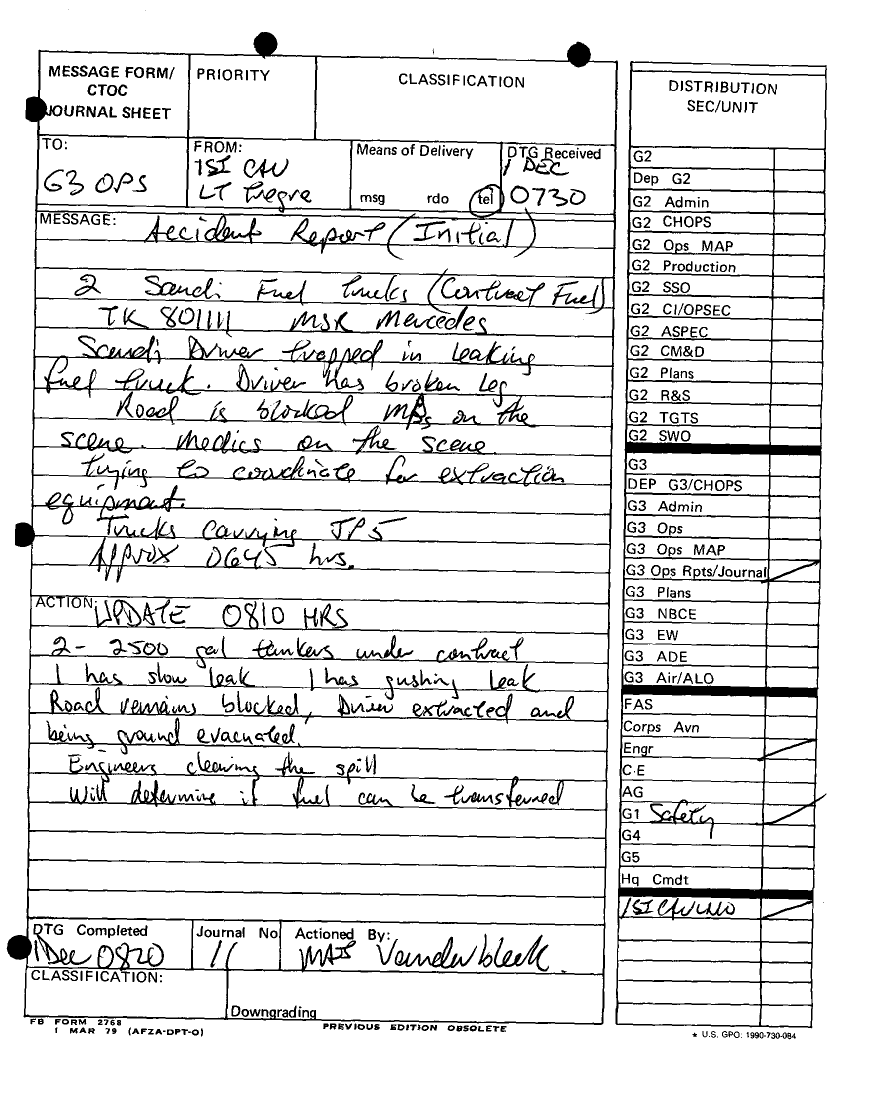 MESSAGE FORM/
CTOC
JOURNAL SHEET
PRIORITY
CLASSIFICATION
TO:
G3 OPS
FROM:
1ST CAV
LT
Means of Delivery
msg rdo tel
DTG Received
1 DEC
0730
MESSAGE:
Accident Report (Initial)
2 Saudi Fuel trucks (Contract Fuel)
TK 801111 MSR Mercedes
Saudi Driver trapped in leaking
fuel truck. Driver has broken leg
Road is blocked MPs on the
scene. Medics on the scene
trying to coordinate for extraction
equipment.
Trucks carrying JP5
Approx 0645 hrs.
ACTION:
UPDATE 0810 HRS
2- 2500 gal tankers under contract
1 has slow leak 1 has gushing leak
Road remains blocked, Driver extracted and
being ground evacuated.
Engineers cleaning the spill
Will determine if fuel can be transferred
DTG Completed
1 Dec 0820
Journal No
11
Actioned By:
MAJ
CLASSIFICATION:
Downgrading
FB FORM 2768
1 MAR 79 (AFZA-DPT-O)
PREVIOUS EDITION OBSOLETE
DISTRIBUTION
SEC/UNIT
G2
Dep G2
G2 Admin
G2 CHOPS
G2 Ops MAP
G2 Production
G2 SSO
G2 CI/OPSEC
G2 ASPEC
G2 CM&D
G2 Plans
G2 R&S
G2 TGTS
G2 SWO
G3
DEP G3/CHOPS
G3 Admin
G3 Ops
G3 Ops MAP
G3 Ops Rpts/Journal
G3 Plans
G3 NBCE
G3 EW
G3 ADE
G3 Air/ALO
FAS
Corps Avn
Engr
C-E
AG
G1 Safety
G4
G5
Hq Cmdt
1ST CAV LNO
* U.S. GPO: 1990-730-084